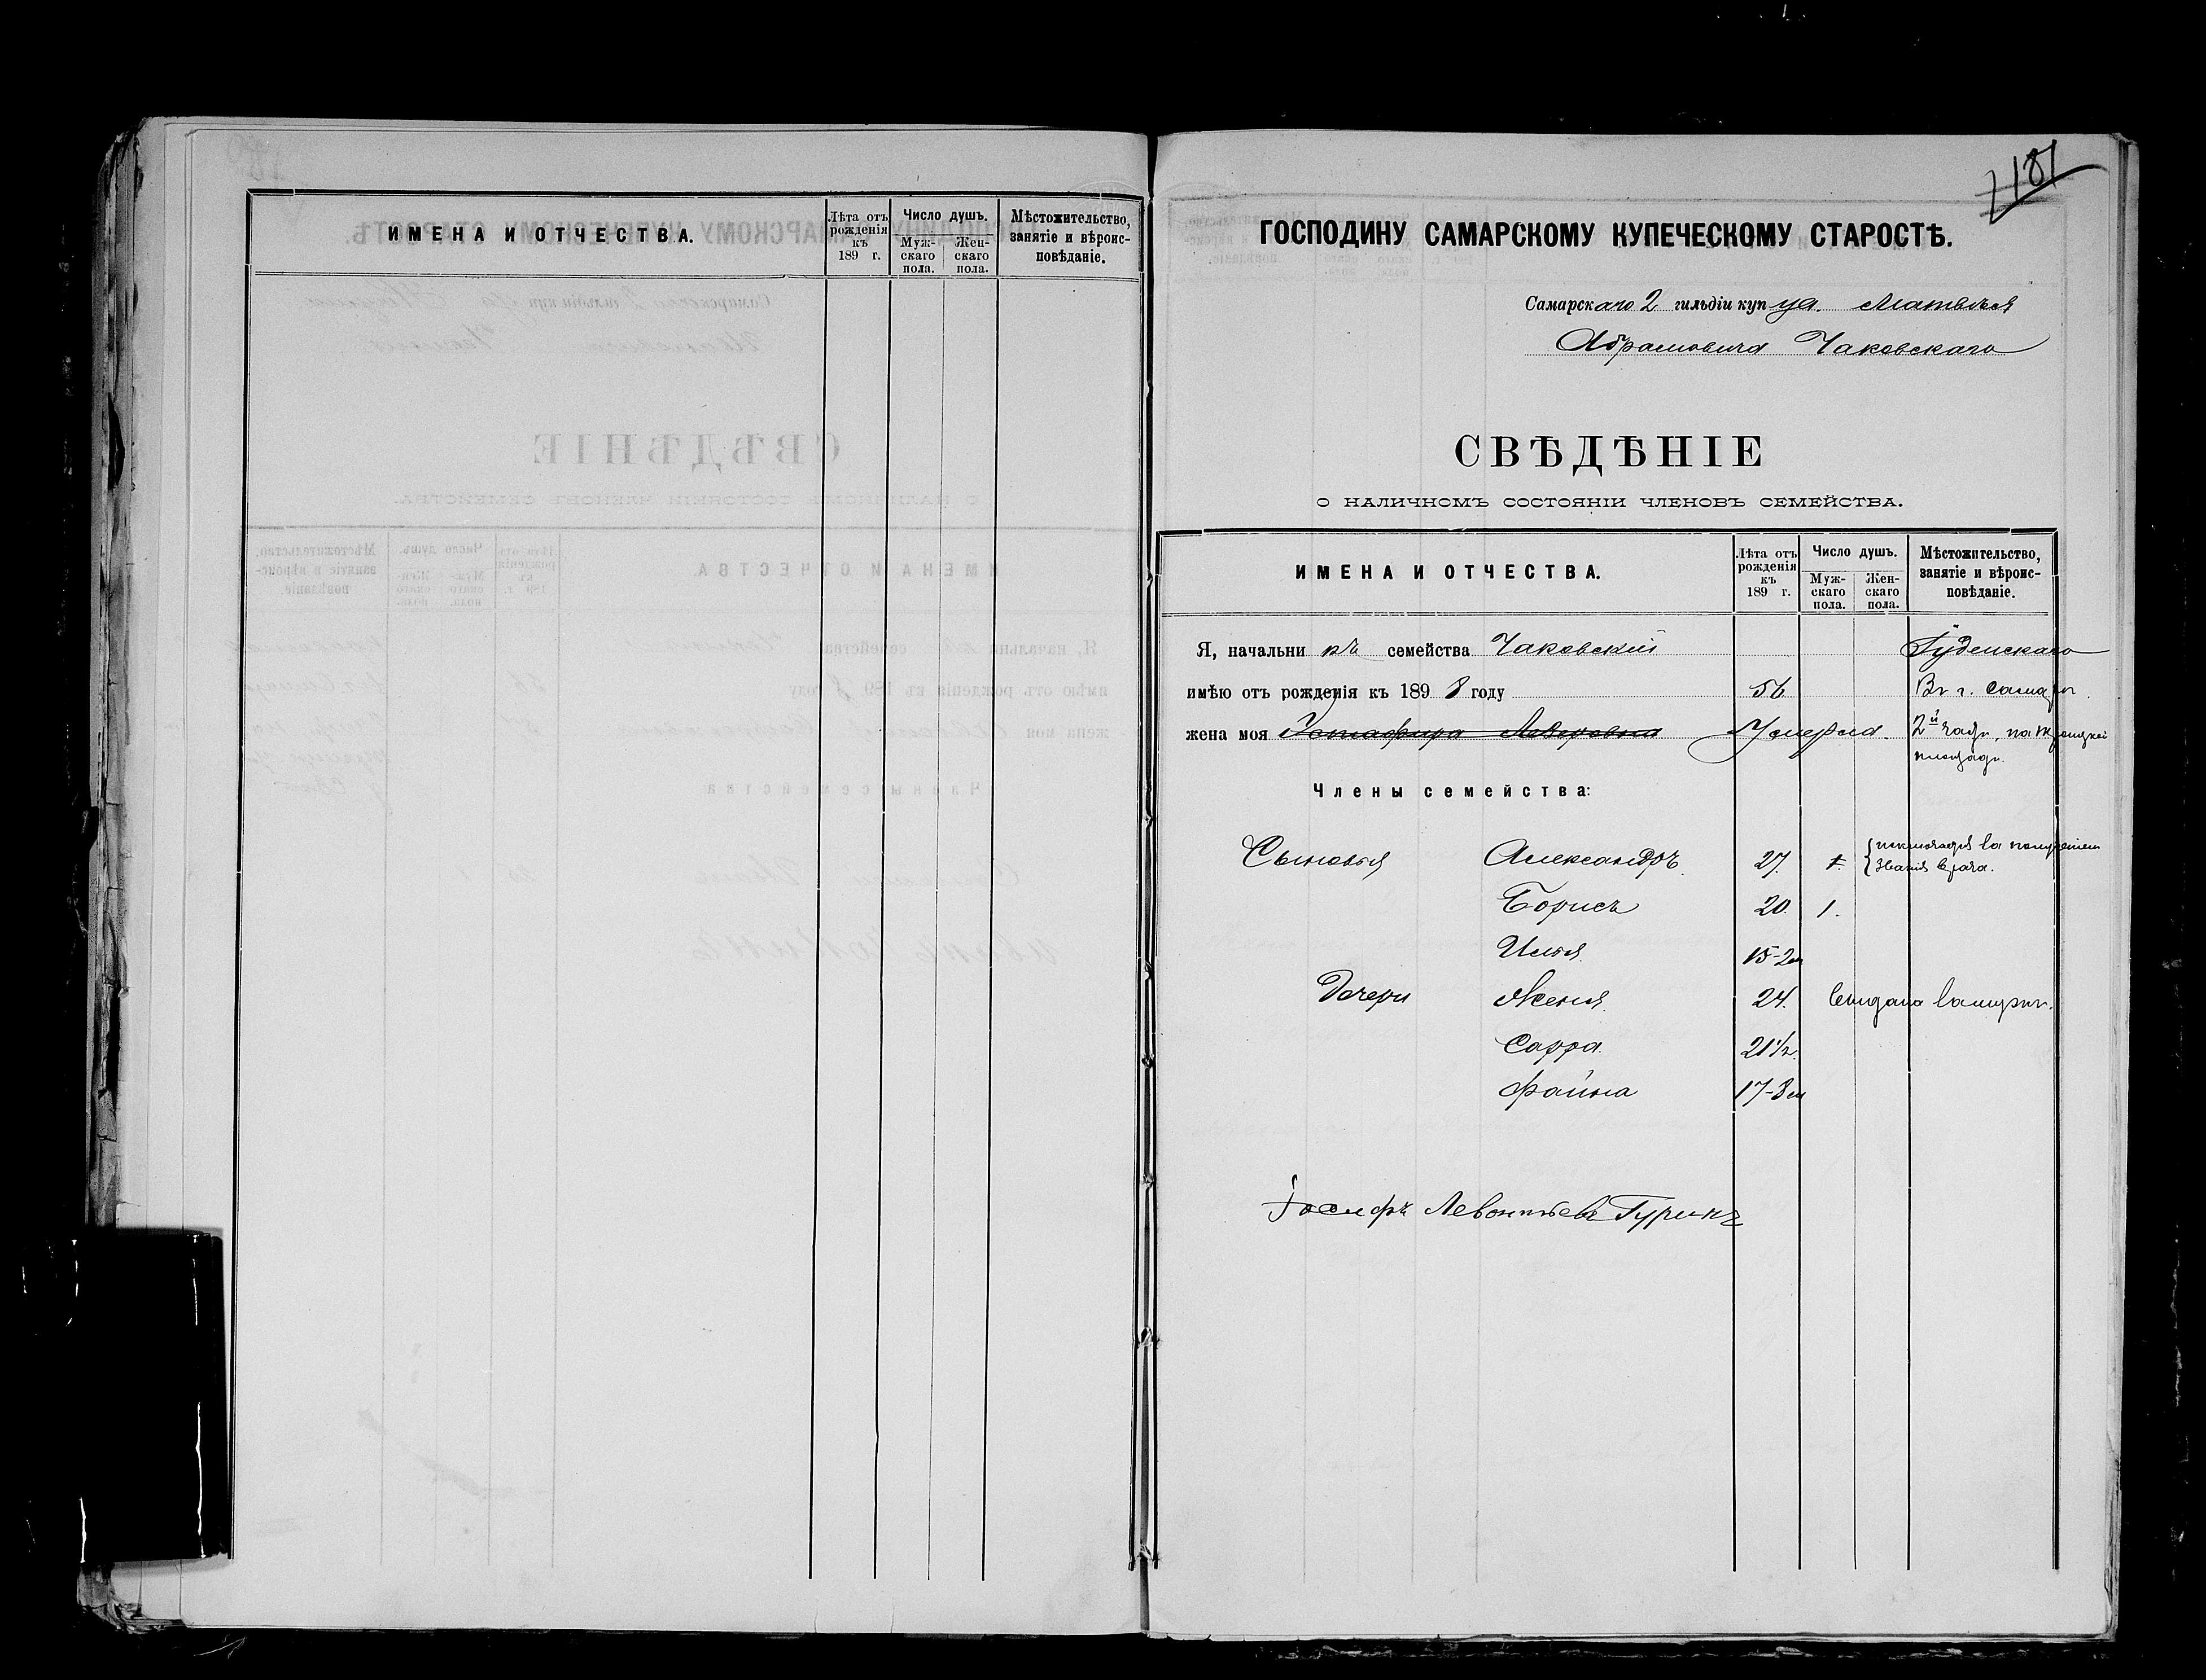 ИМЕНА И ОТЧЕСТВА.
Лѣта отъ рожденія къ 189 г.
Число душъ.
Муж-скаго пола.
Жен-скаго пола.
Мѣстожительство, занятіе и вѣроис-повѣданіе.
181
ГОСПОДИНУ САМАРСКОМУ КУПЕЧЕСКОМУ СТАРОСТѢ.
Самарскаго 2 гильдіи купца Матвѣя
Абрамовича Чаковскаго
СВѢДѢНІЕ
О НАЛИЧНОМЪ СОСТОЯНІИ ЧЛЕНОВЪ СЕМЕЙСТВА.
ИМЕНА И ОТЧЕСТВА.
Лѣта отъ рожденія къ 189 г.
Число душъ.
Муж-скаго пола.
Жен-скаго пола.
Мѣстожительство, занятіе и вѣроис-повѣданіе.
Я, начальникъ семейства Чаковскій Іудейскаго
имѣю отъ рожденія къ 1898 году 56 Въ г. Самарѣ
жена моя Умерла. 2й части, на Троицкой
площади.
Члены семейства:
Сыновья Александръ 27. 1. исключается за полученіем
званія врача.
Борисъ 20. 1.
Илья 15-2м
Дочери Женя 24. выдана замужъ.
Сарра 21 1/2.
Фаина 17-8м
Іосифъ Левонтьев Гурик